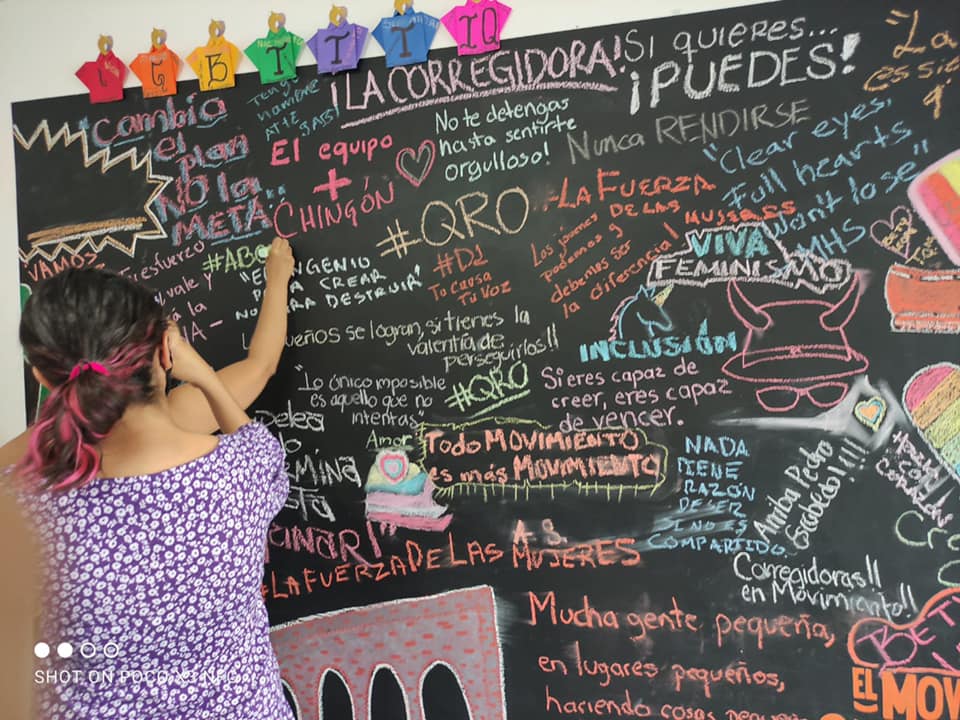 L G B T T T IQ
¡LA CORREGIDORA!
Si quieres...
¡PUEDES!
"La
Cambia
el
plan
NO la
META
El equipo
+
CHINGÓN
No te detengas
hasta sentirte
orgulloso!
Nunca RENDIRSE
"Clear eyes,
Full hearts
want lose"
MHS
#QRO
-LA FUERZA
DE LAS
MUJERES
Los jóvenes
Podemos y
debemos ser
la diferencia!
VIVA
FEMINISMO
VAMOS
esfuerzo
vale y
la
#ABO
"EL INGENIO
PARA CREAR
NO PARA DESTRUIR"
#D1
Tu causa
Tu Voz
INCLUSIÓN
sueños se logran, si tienes la
valentía de
perseguirlos!!
"Lo único imposible
es aquello que no
intentas"
#QRO
Si eres capaz de
creer, eres capaz
de vencer.
Pelea
Amor
Todo MOVIMIENTO
es más MOVIMIENTO
NADA
TIENE
RAZÓN
DE SER
SI NO ES
COMPARTIDO.
Arriba Pedro
Escobedo!!!!
A.S.
#LAFUERZADELASMUJERES
Corregidoras!!
en Movimiento!!
Mucha gente pequeña,
en lugares pequeños,
haciendo cosas pequeñas
EL MOV
SHOT ON POCO X3 NFC